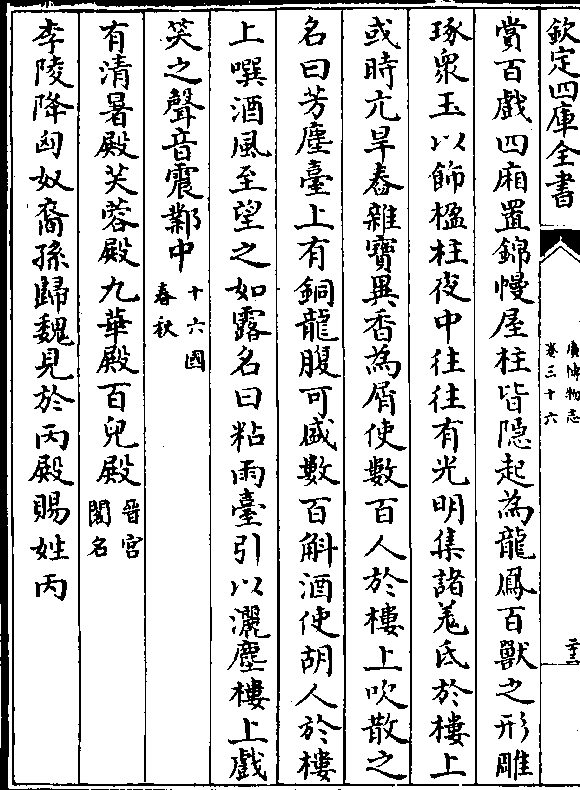 欽定四庫全書
廣博物志
卷三十六
二十三
賞百戲四廂置錦幔屋柱皆隠起為龍鳳百獸之形雕
琢衆玉以飾楹柱夜中往往有光明集諸羌氐於樓上
或時亢旱舂雜寶異香為屑使數百人於樓上吹散之
名曰芳塵臺上有銅龍腹可盛數百斛酒使胡人於樓
上噀酒風至望之如露名曰粘雨臺引以灑塵樓上戲
笑之聲音震鄴中十六國春秋
有清暑殿芙蓉殿九華殿百兒殿晉宫閣名
李陵降匈奴裔孫歸魏見於丙殿賜姓丙